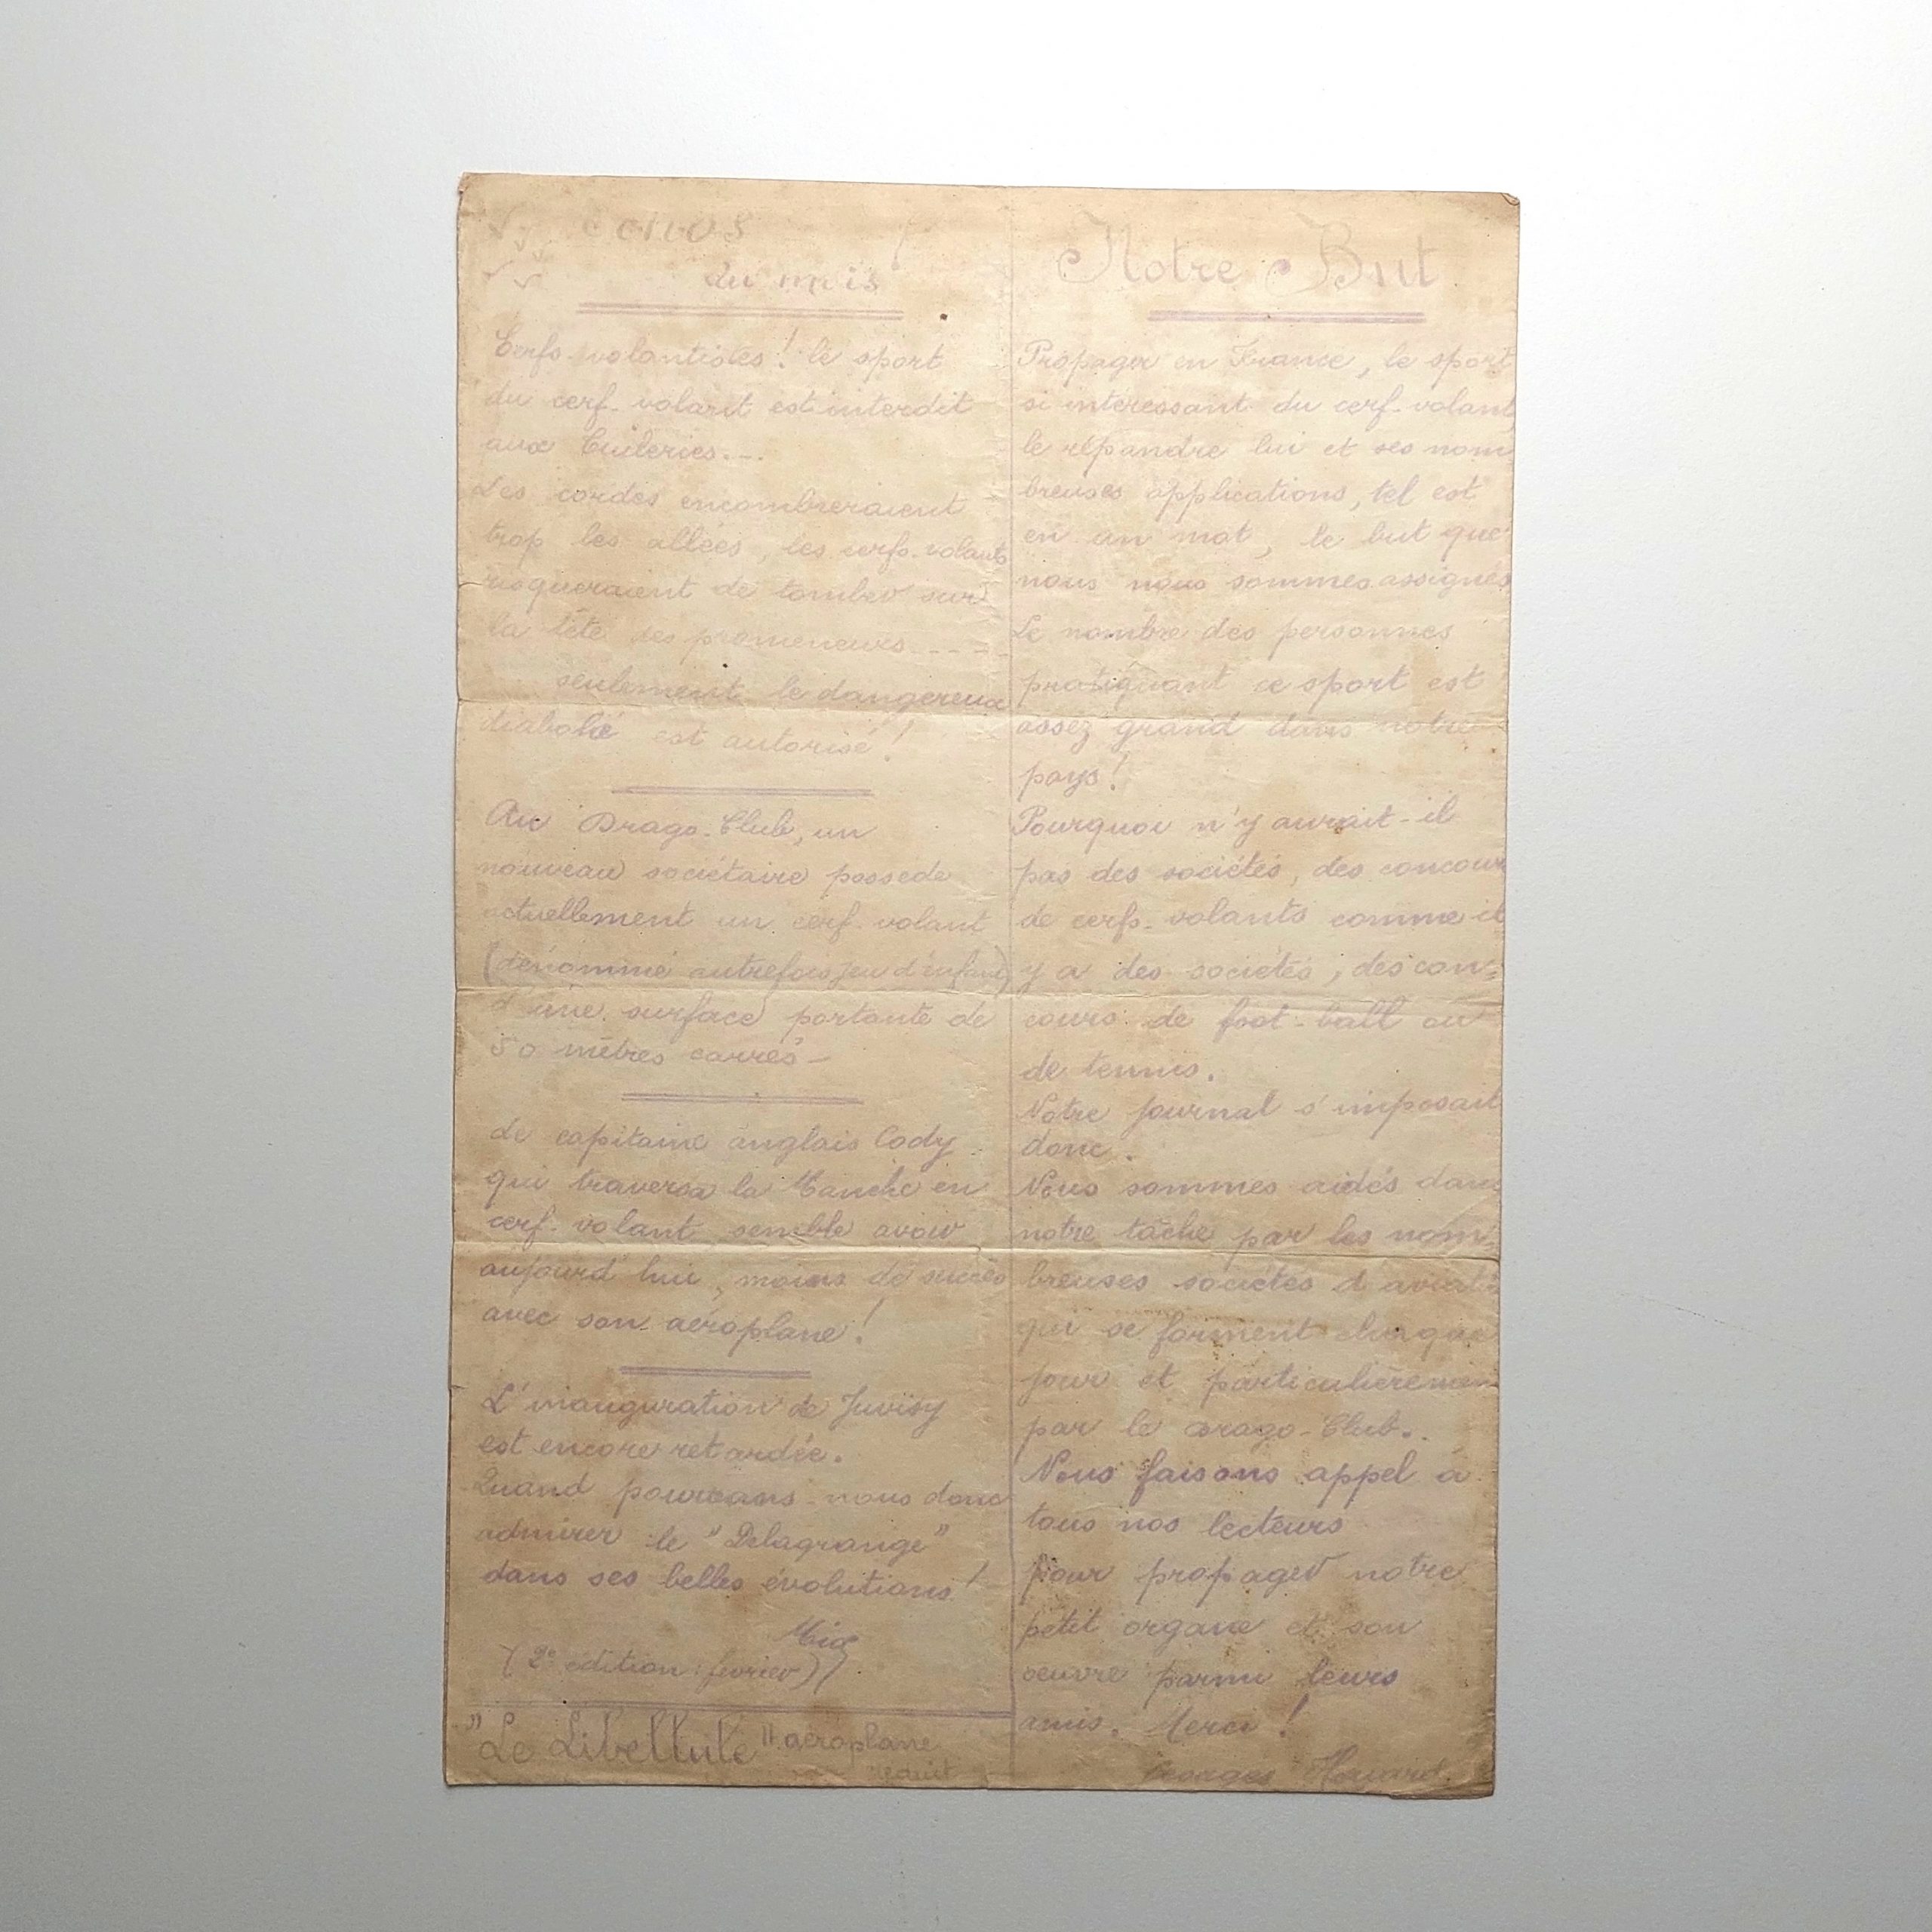 échos
du mois
Cerfs-volantistes! le sport
du cerf-volant est interdit
aux Tuileries...
Les cordes encombreraient
trop les allées, les cerfs-volants
risqueraient de tomber sur
la tête des promeneurs-----
seulement le dangereux
diabolo est autorisé!
Au Drago-Club, un
nouveau sociétaire possède
actuellement un cerf-volant
(dénommé autrefois jeu d'enfant)
d'une surface portante de
50 mètres carrés-
Le capitaine anglais Cody
qui traversa la Manche en
cerf-volant semble avoir
aujourd'hui, moins de succès
avec son aéroplane!
L'inauguration de Juvisy
est encore retardée.
Quand pourrons-nous donc
admirer le "Delagrange"
dans ses belles évolutions!
(2e édition: février)
"Le Libellule" aéroplane
réduit
Notre But
Propager en France, le sport
si intéressant du cerf-volant,
le répandre lui et ses nom
breuses applications, tel est
en un mot, le but que
nous nous sommes assignés
Le nombre des personnes
pratiquant ce sport est
assez grand dans notre
pays!
Pourquoi n'y aurait-il
pas des sociétés, des concours
de cerfs-volants comme il
y a des sociétés, des con-
cours de foot-ball ou
de tennis.
Notre journal s'imposait
donc.
Nous sommes aidés dans
notre tâche par les nom-
breuses sociétés d'aviati
qui se forment chaque
jour et particulièremen
par le Drago-Club.
Nous faisons appel à
tous nos lecteurs
pour propager notre
petit organe et son
oeuvre parmi leurs
amis. Merci!
Georges Houard.